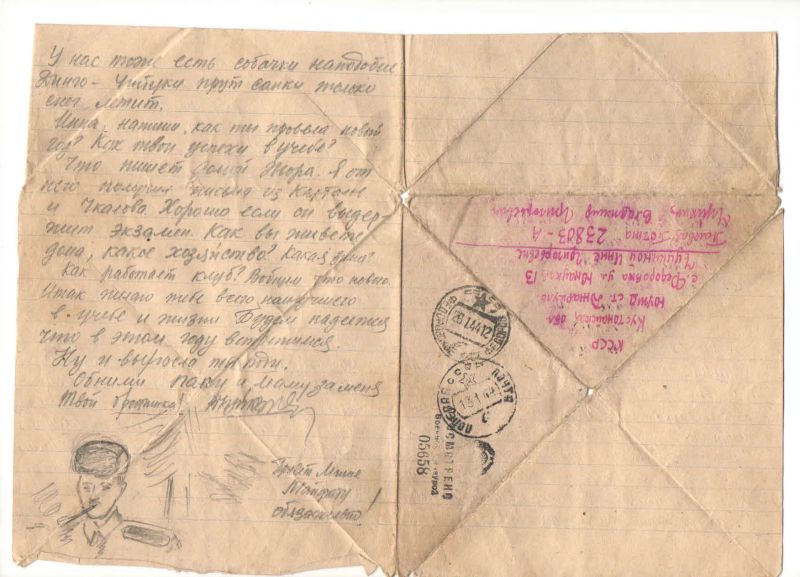 У нас тоже есть собачки наподобие
Динго - Чипуки прут санки только
снег летит.
Инна, напиши, как ты провела новый
год? Как твои успехи в учебе?
Что пишет Жора. Я от
него получил письма из
и Чкалова. Хорошо если он выдер-
жит экзамен. Как вы живете
дома, какое хозяйство? Какая
Как работает клуб? Вобщем что нового.
Итак желаю тебе всего наилучшего
в учебе и жизни Будем надеятся
что в этом году встретимся.
Ну и выросла ты поди.
Обними папу и маму за меня
Твой братишка!
Привет
обязательно!
КССР
Кустанайская обл
ст.
с. Федоровка ул 13
Инне Григорьевне
Полевая Почта 23803-А
Владимир Григорьевич
ПОЛЕВАЯ ПОЧТА
13 1 44
ПРОСМОТРЕНО
Военной Цензурой
05658